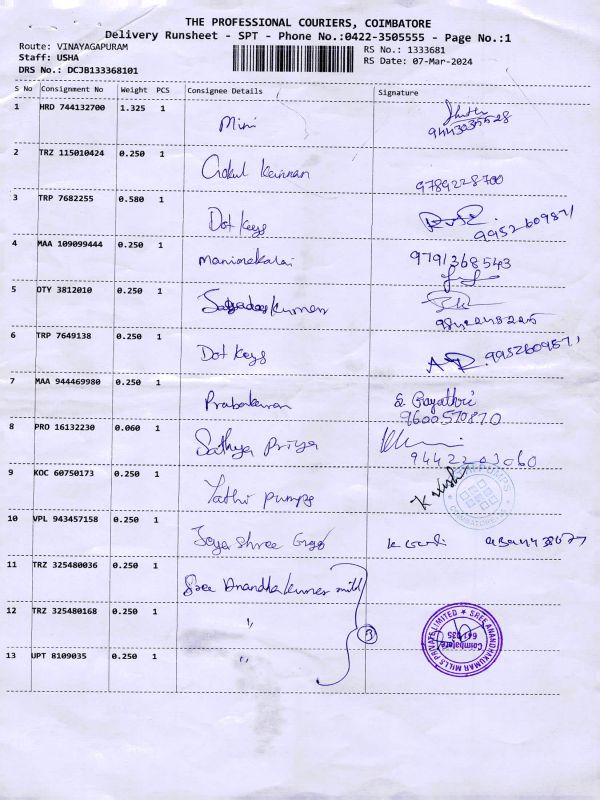 THE PROFESSIONAL COURIERS, COIMBATORE
Delivery Runsheet - SPT - Phone No.:0422-3505555 - Page No.:1
Route: VINAYAGAPURAM
Staff: USHA
DRS No.: DCJB133368101
RS No.: 1333681
RS Date: 07-Mar-2024
S No Consignment No Weight PCS Consignee Details Signature
1 HRD 744132700 1.325 1 Mini
9443035528
2 TRZ 115010424 0.250 1 Gokul Kannan 9789228700
3 TRP 7682255 0.580 1 Dot Keys 9952609871
4 MAA 109099444 0.250 1 Manimekalai 9791368543
5 OTY 3812010 0.250 1
6 TRP 7649138 0.250 1 Dot Keys 9952609871
7 MAA 944469980 0.250 1 Prabakaran S. Gayathri
9600570870
8 PRO 16132230 0.060 1 Sathya Priya
9442203060
9 KOC 60750173 0.250 1 Yathi Pumps
10 VPL 943457158 0.250 1 Jaya Shree
11 TRZ 325480036 0.250 1 Sree Anandhakumar mill
12 TRZ 325480168 0.250 1 "
13 UPT 8109035 0.250 1 "
SREE ANANDHAKUMAR MILLS PRIVATE LIMITED
Coimbatore
641 035